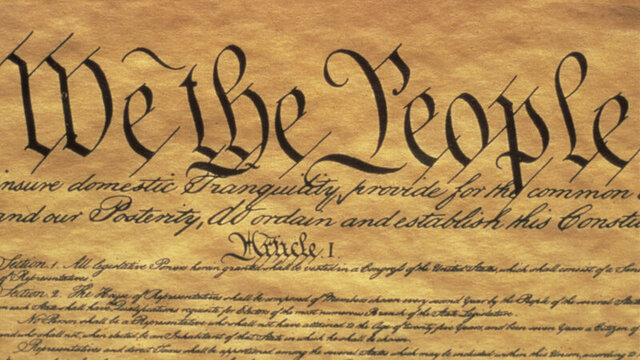 We the People
insure domestic Tranquility, provide for the common
and our Posterity, do ordain and establish this Consti
Article I
Section. 1. All legislative Powers herein granted shall be vested in a Congress of the United States, which shall consist of a Sen
of Representatives.
Section. 2. The House of Representatives shall be composed of Members chosen every second Year by the People of the several States
in each State shall have Qualifications requisite for Electors of the most numerous Branch of the State Legislature.
No Person shall be a Representative who shall not have attained to the Age of twenty five Years, and been seven Years a Citizen of
and who shall not, when elected, be an Inhabitant of that State in which he shall be chosen.
Representatives and direct Taxes shall be apportioned among the several States which may be included within this Union, according to